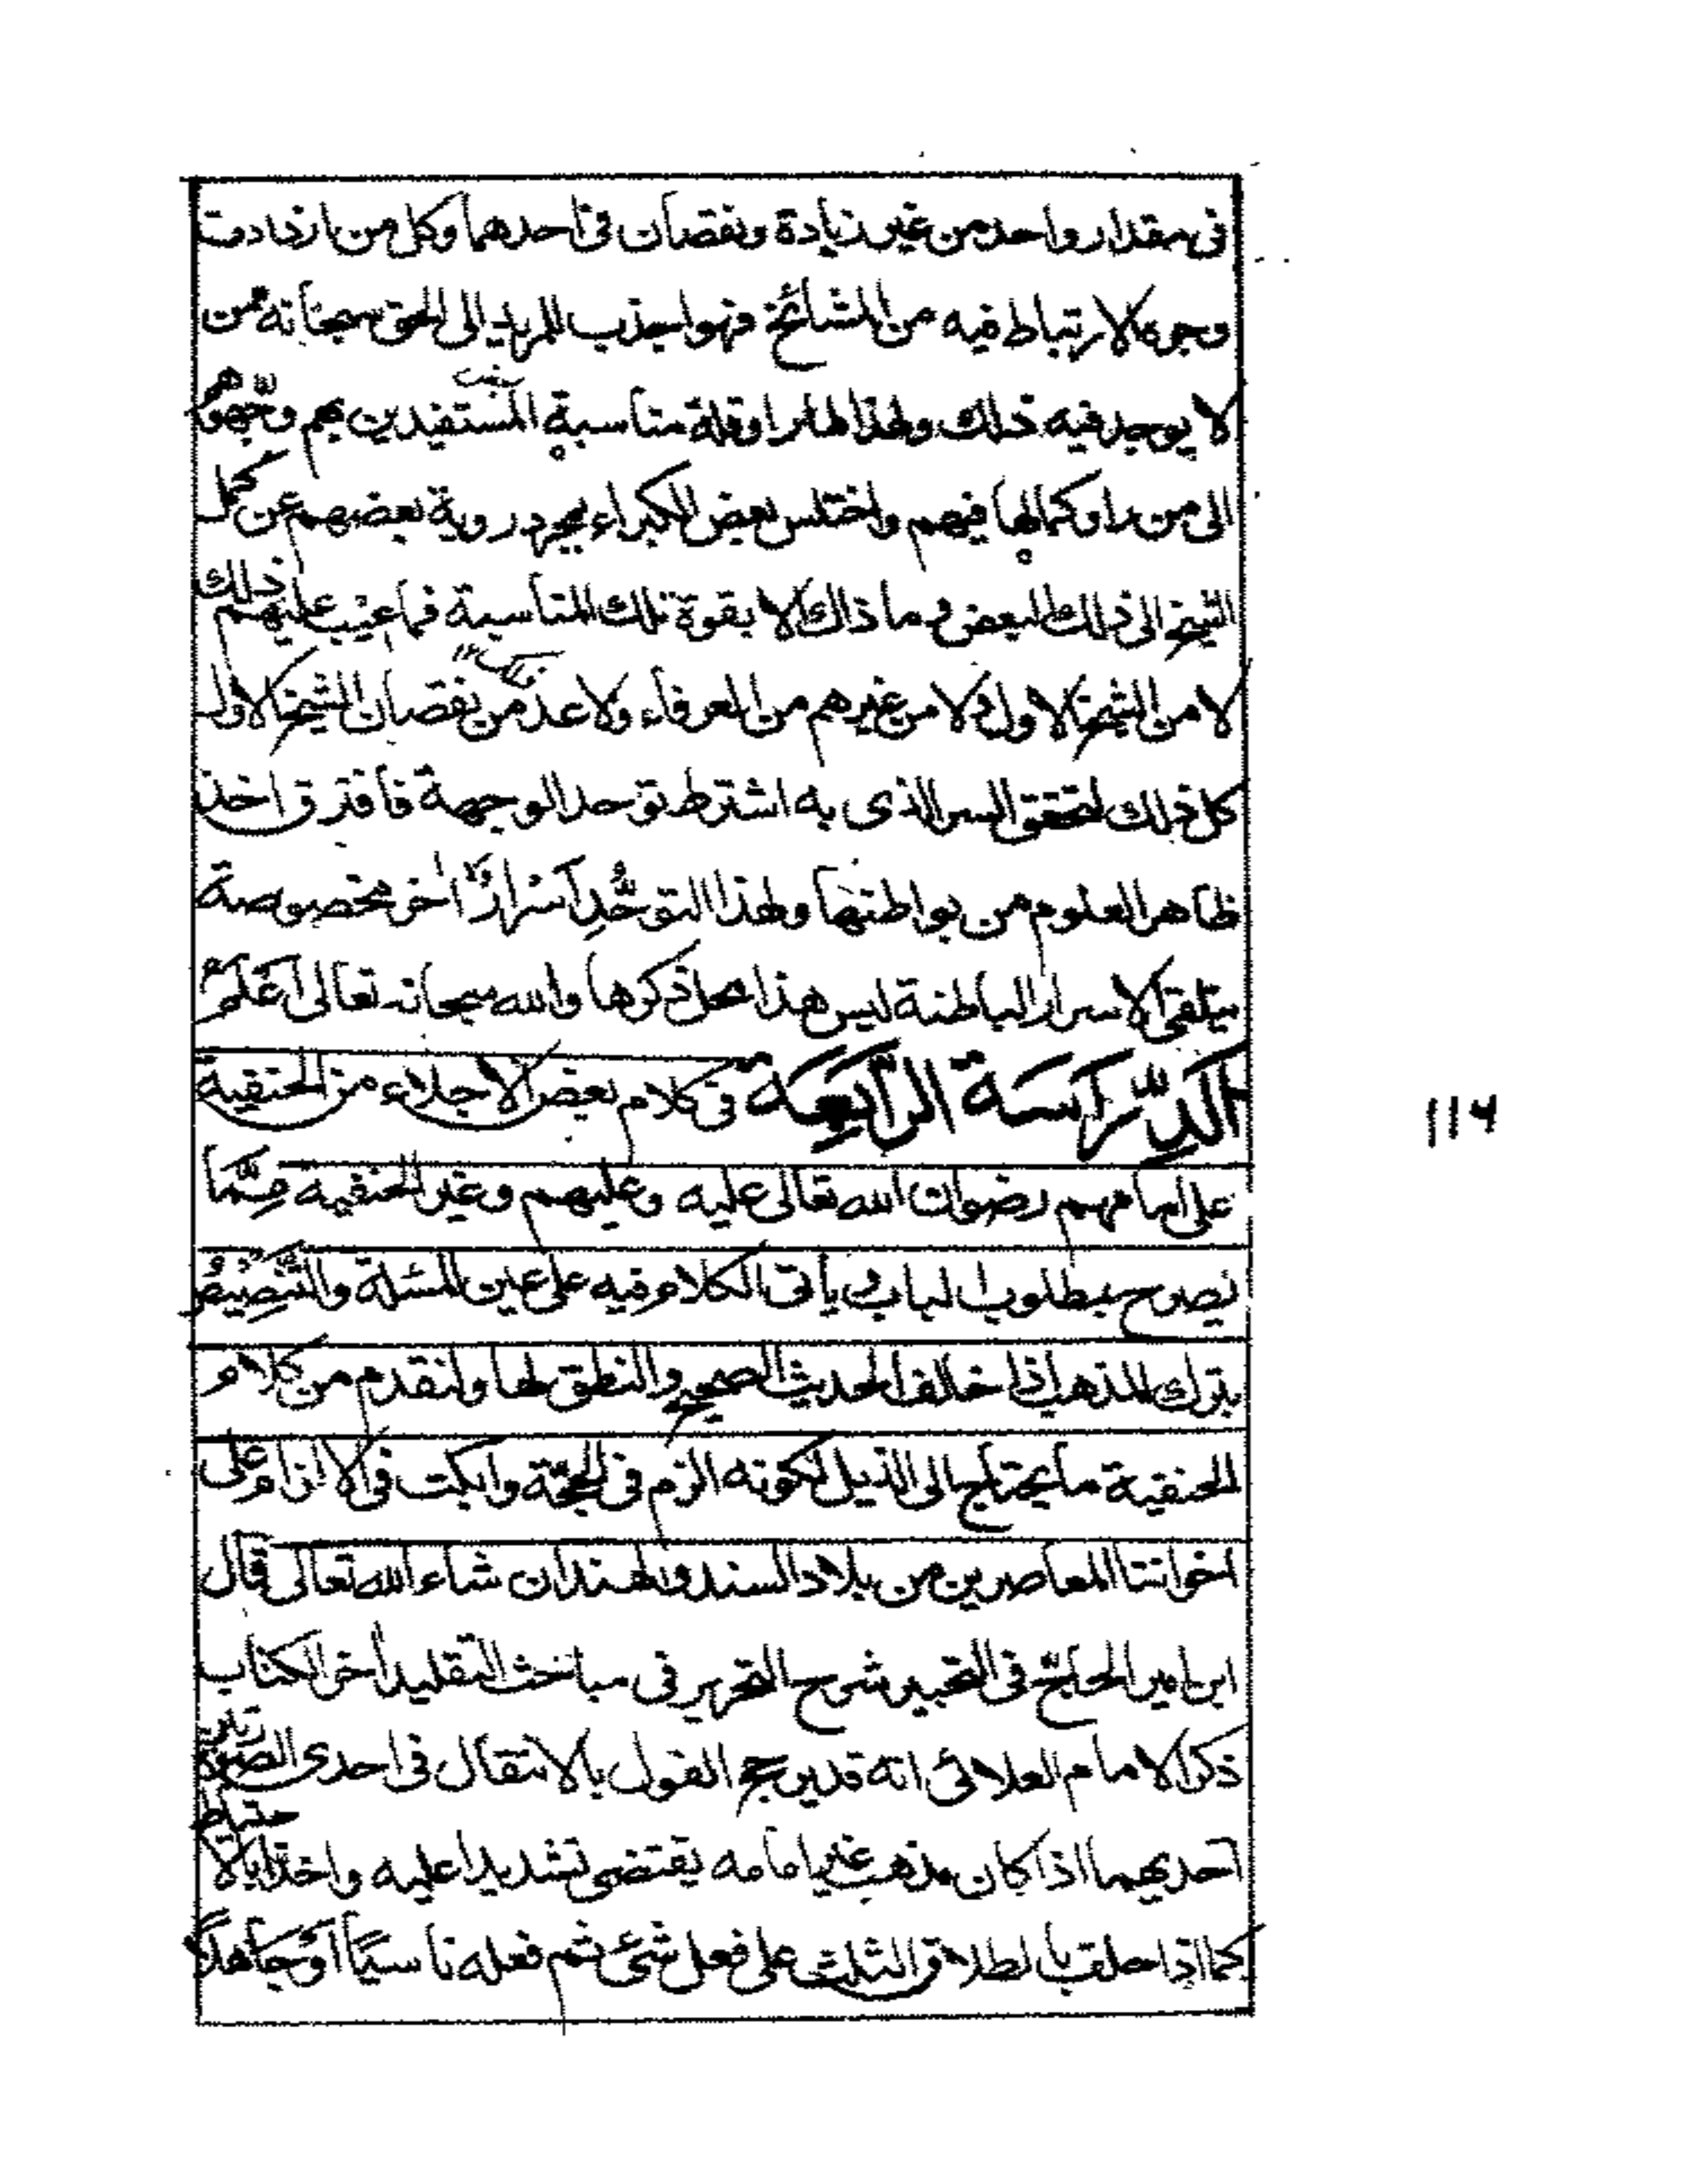 فى مقدار واحد من غير زيادة ونقصان فى احدهما وكل من ازدادت
وجوه الارتباط فيه من المشائخ فهو اجذب للمريد الى الحق سبحانه ممن
لا يوجد فيه ذلك ولهذا لما راوقلة مناسبة المستفيدين بهم وجهوهم
الى من راوكمالها فيهم واختلس بعض الكبراء بمجرد روية بعضهم عن كمل
الشيخ الى ذلك البعض وما ذاك الا بقوة تلك المناسبة فما عيب عليهم ذلك
لا من الشيخ الاول ولا من غيرهم من العرفاء ولا عد من نقصان الشيخ الاول
كل ذلك لتحقق السر الذى به اشترط توحد الوجهة فافترق اخذ
ظاهر العلوم من بواطنها ولهذا التوحد اسرار اخر مخصوصة
بتلقى الاسرار الباطنة ليس هذا محل ذكرها والله سبحانه تعالى اعلم
الدراسة الرابعة فى كلام بعض الاجلاء من الحنفية
على امامهم رضوان الله تعالى عليه وعليهم وغير الحنفية مما
يصرح بمطلوب الباب ويأتى الكلام فيه على عين المسئلة والتنصيص
بترك المذهب اذا خالف الحديث الصحيح والنطق لها ولنقدم من كلام
الحنفية ما يحتاج الى الذيل لكونه الزم فى الحجة وابكت فى الالزام على
اخواننا المعاصرين من بلاد السند والهند ان شاء الله تعالى قال
ابن امير الحاج فى التحبير شرح التحرير فى مباحث التقليد اخر الكتاب
ذكر الامام العلائى انه قد يرجح القول بالانتقال فى احدى الصورتين
احديهما اذا كان مذهب غير امامه يقتضى تشديدا عليه واخذا بالاحتياط
كما اذا حلف بالطلاق الثلث على فعل شئ ثم فعله ناسيا او جاهلا
114